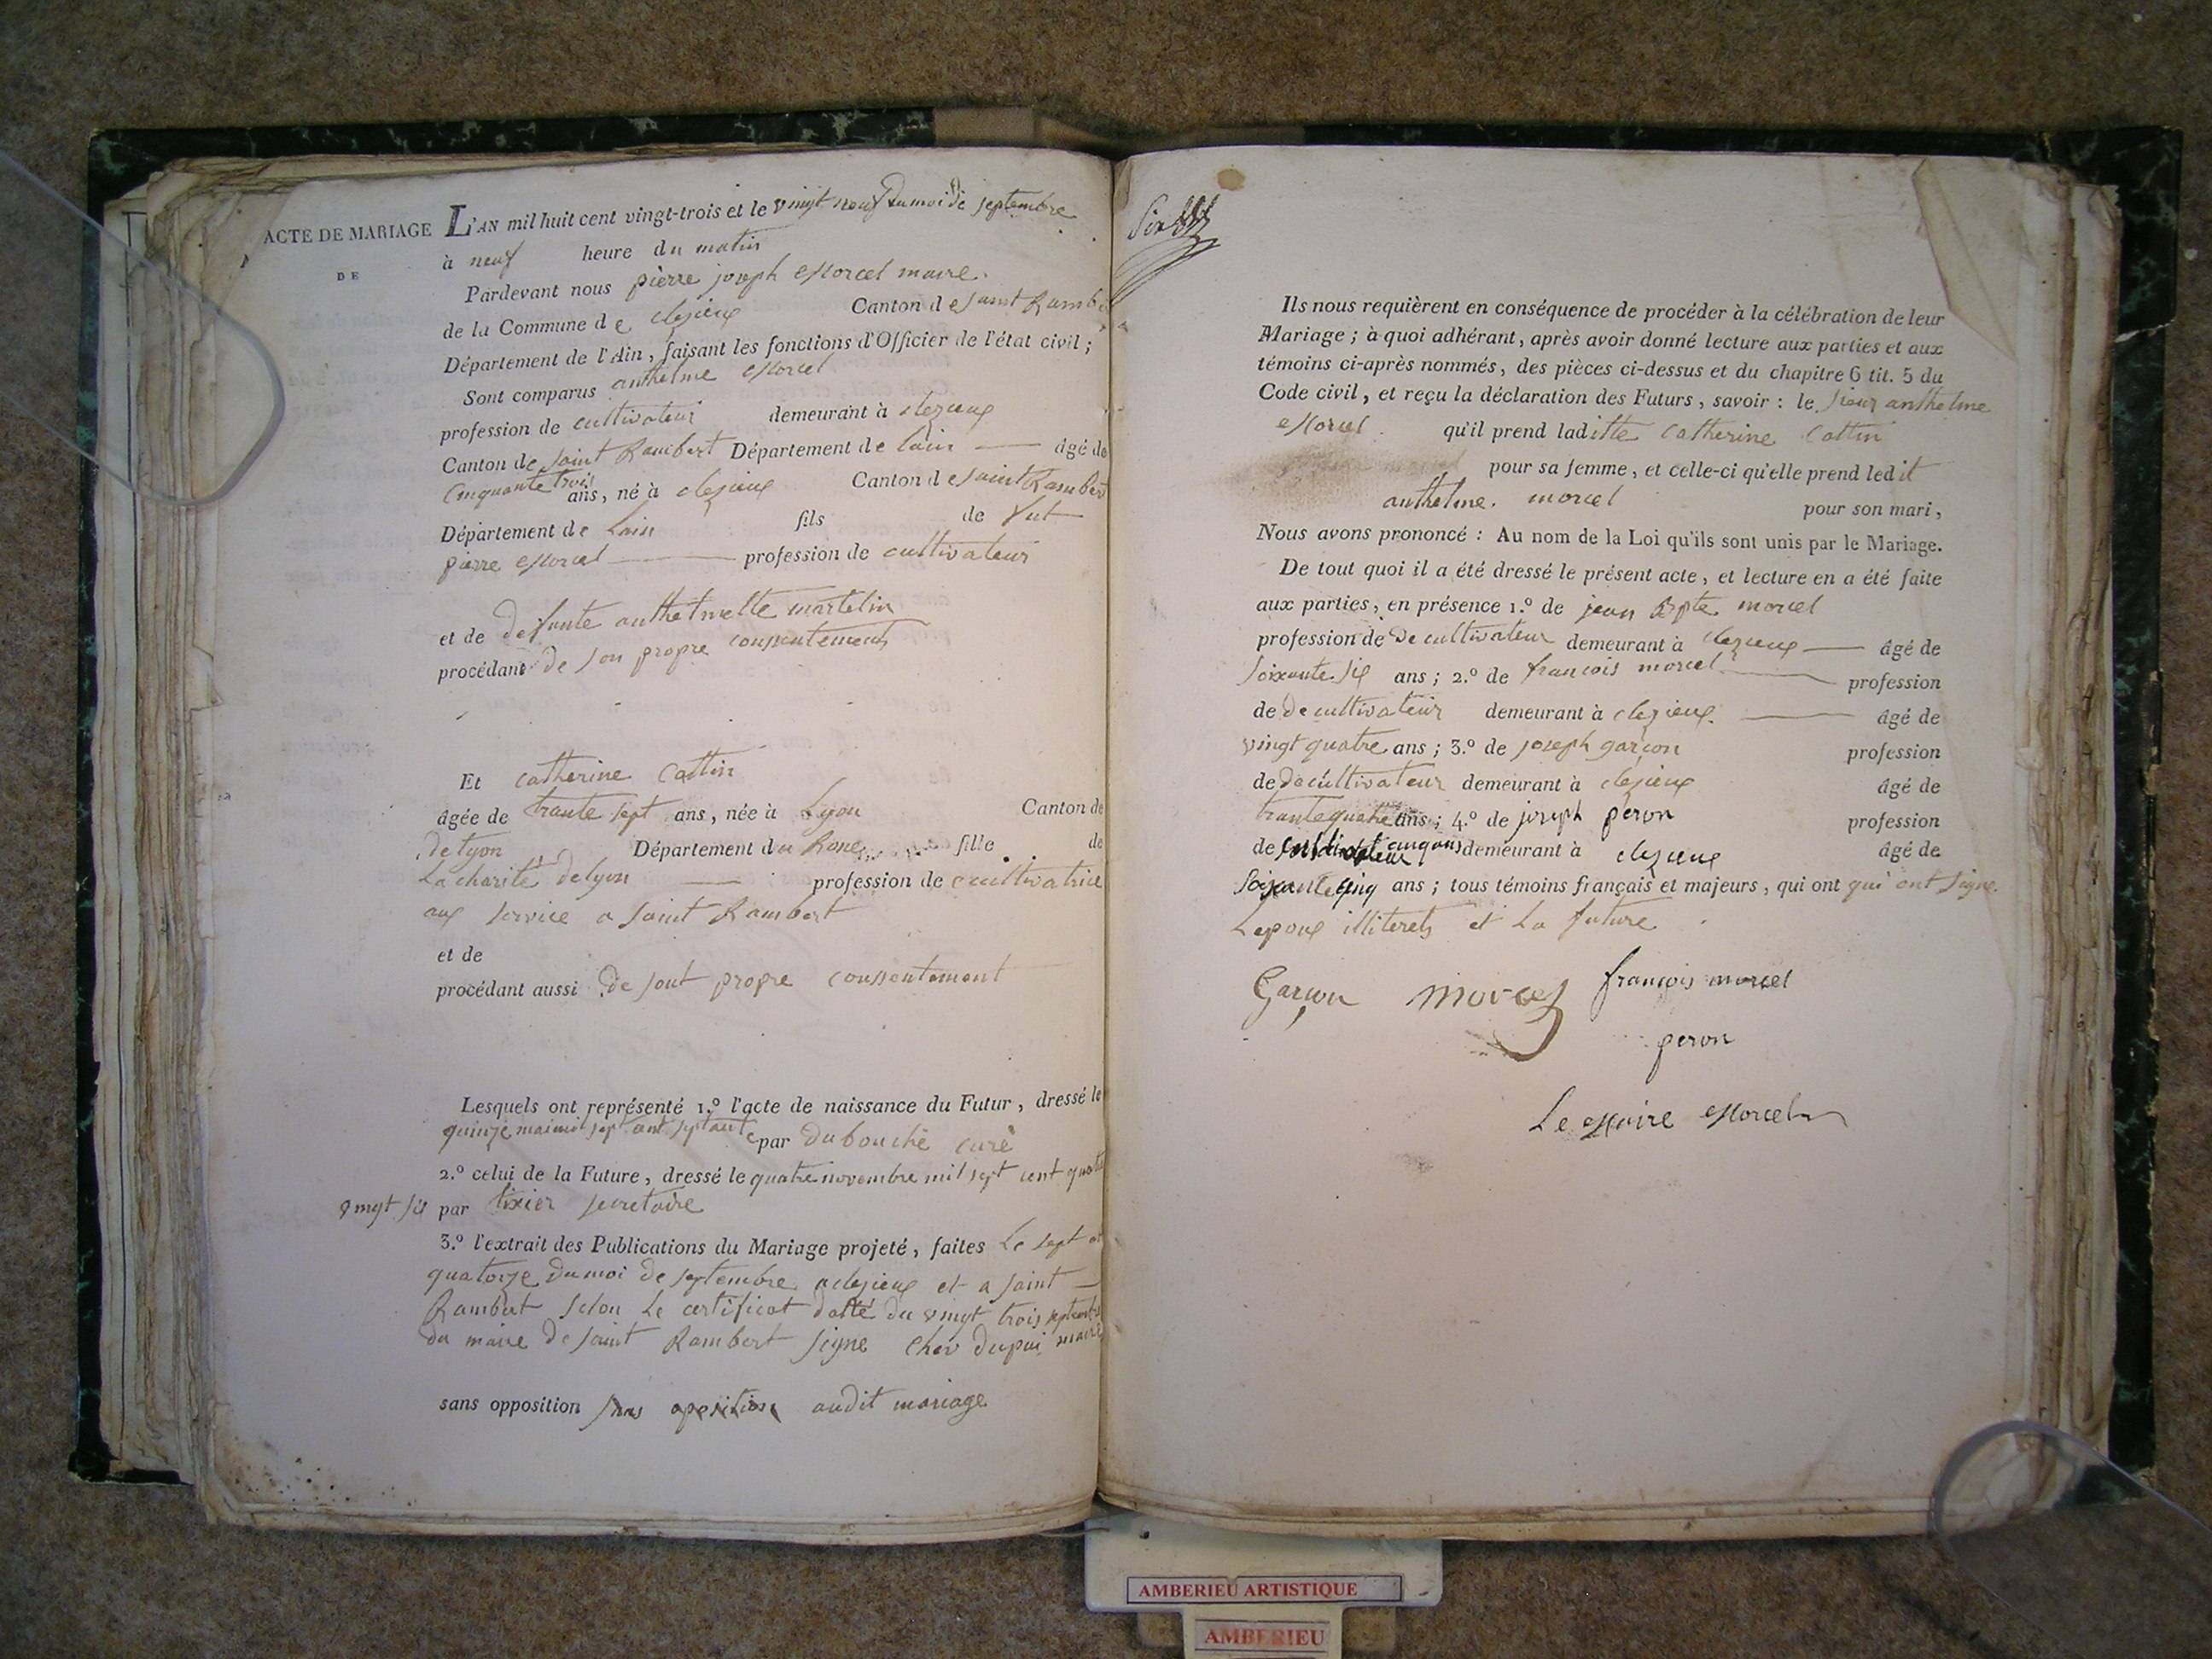 ACTE DE MARIAGE
DE
L'AN mil huit cent vingt-trois et le vingt neuf du moi de septembre
à neuf heure du matin
Pardevant nous pierre joseph Morcel maire.
de la Commune de clezieux Canton de saint Rambe
Département de l'Ain, faisant les fonctions d'Officier de l'état civil;
Sont comparus anthelme Morcel
profession de cultivateur demeurant à clezieux
Canton de saint Rambert Département de lain âgé de
Cinquante trois ans, né à clezieux Canton de saint Rambert
Département de Lain fils de
pierre Morcel profession de cultivateur
et de defunte anthelmette martelin
procédant de son propre conssentement
Et catherine Cattin
âgée de trante sept ans, née à Lyon Canton de
de lyon Département du Rone fille de
La charité de lyon profession de cultivatrice
aux service a saint Rambert
et de
procédant aussi de sont propre conssentement
Lesquels ont représenté 1.º l'acte de naissance du Futur, dressé le
quinze mai mil sept cent septante par dubouché curé
2.º celui de la Future, dressé le quatre novembre mil sept cent quatre
vingt six par tixier secretaire
3.º l'extrait des Publications du Mariage projeté, faites le sept et
quatorze du moi de septembre a clezieux et a saint
Rambert selon le certificat datté du vingt trois septembre
du maire de saint Rambert signe Chev dupui maire
sans opposition sans opposition audit mariage
Ils nous requièrent en conséquence de procéder à la célébration de leur
Mariage; à quoi adhérant, après avoir donné lecture aux parties et aux
témoins ci-après nommés, des pièces ci-dessus et du chapitre 6 tit. 5 du
Code civil, et reçu la déclaration des Futurs, savoir: le sieur anthelme
Morcel qu'il prend laditte Catherine Cattin
pour sa femme, et celle-ci qu'elle prend ledit
anthelme. morcel pour son mari,
Nous avons prononcé: Au nom de la Loi qu'ils sont unis par le Mariage.
De tout quoi il a été dressé le présent acte, et lecture en a été faite
aux parties, en présence 1.º de jean Bpte morcel
profession de de cultivateur demeurant à clezieux âgé de
soixante six ans; 2.º de francois morcel profession
de de cultivateur demeurant à clezieux. âgé de
vingt quatre ans; 3.º de joseph garçon profession
de de cultivateur demeurant à clezieux âgé de
trante quatre ans; 4.º de joseph peron profession
de demeurant à clezieux âgé de
soixante cinq ans; tous témoins français et majeurs, qui ont qui ont signe.
Lepoux illiterets et la future
Garçon morcel françois morcel
peron
Le Maire Morcel
AMBERIEU ARTISTIQUE
AMBERIEU